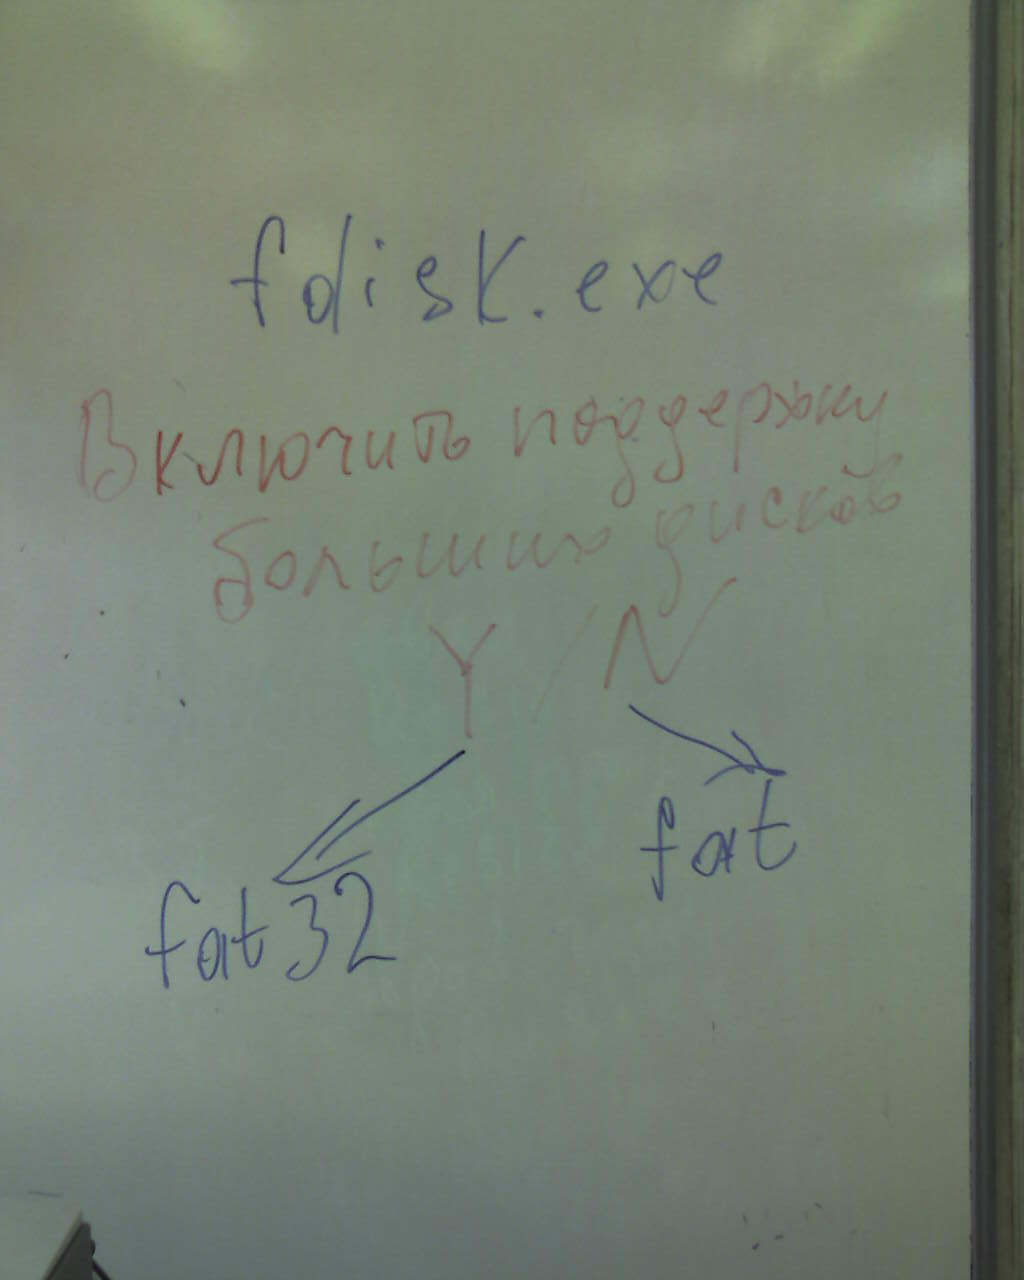 fdisk.exe
Включить поддержку
больших дисков
Y/N
fat
fat32